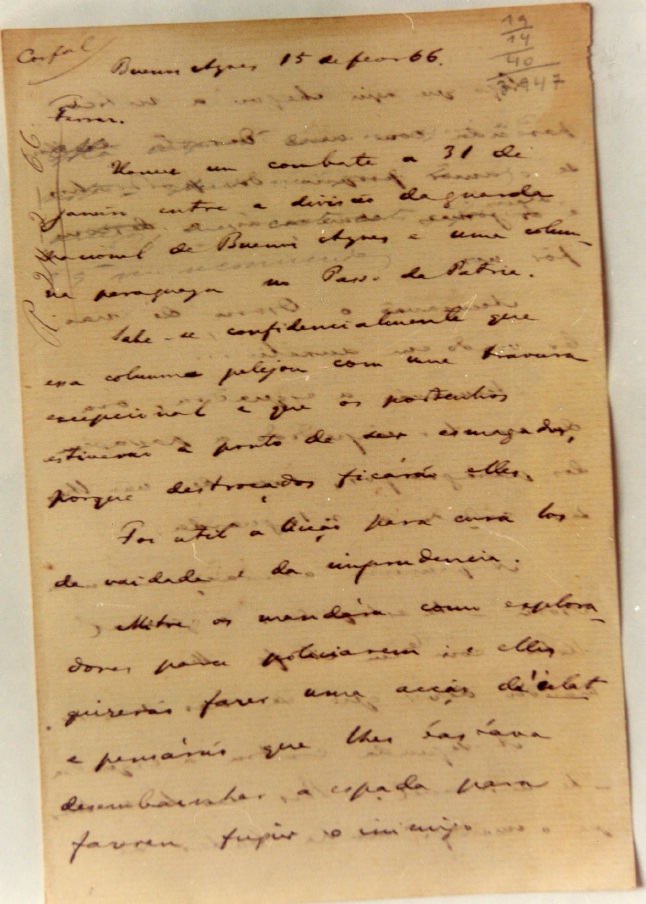 Confal
19
14
40
Buenos Ayres 15 de fevro 66.
Ferraz.
Houve um combate a 31 de
janeiro entre a divisão da guarda
nacional de Buenos Ayres e uma colum-
na paraguaya no Passo da Patria.
Sabe-se confidencialmente que
essa columna pelejou com uma bravura
excepcional e que os portenhos
estiverão a ponto de ser esmagados,
porque destroçados ficárão elles.
Foi util a lição para cura-los
da vaidade e da imprudencia.
Mitre os mandára como explora-
dores para policiarem e elles
quizerão fazer uma acção d'éclat
e pensárão que lhes bastava
desembainhar a espada para
fazerem fugir o inimigo